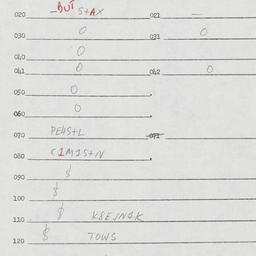 020 BUT S+AX 021 —
030 0 031 0
040 0
041 0 042 0
050 0
060 0
070 PEHS+L 071
080 C1M1S+N
090 $
100 $
110 $ K8EJNSK
120 $ TOWS